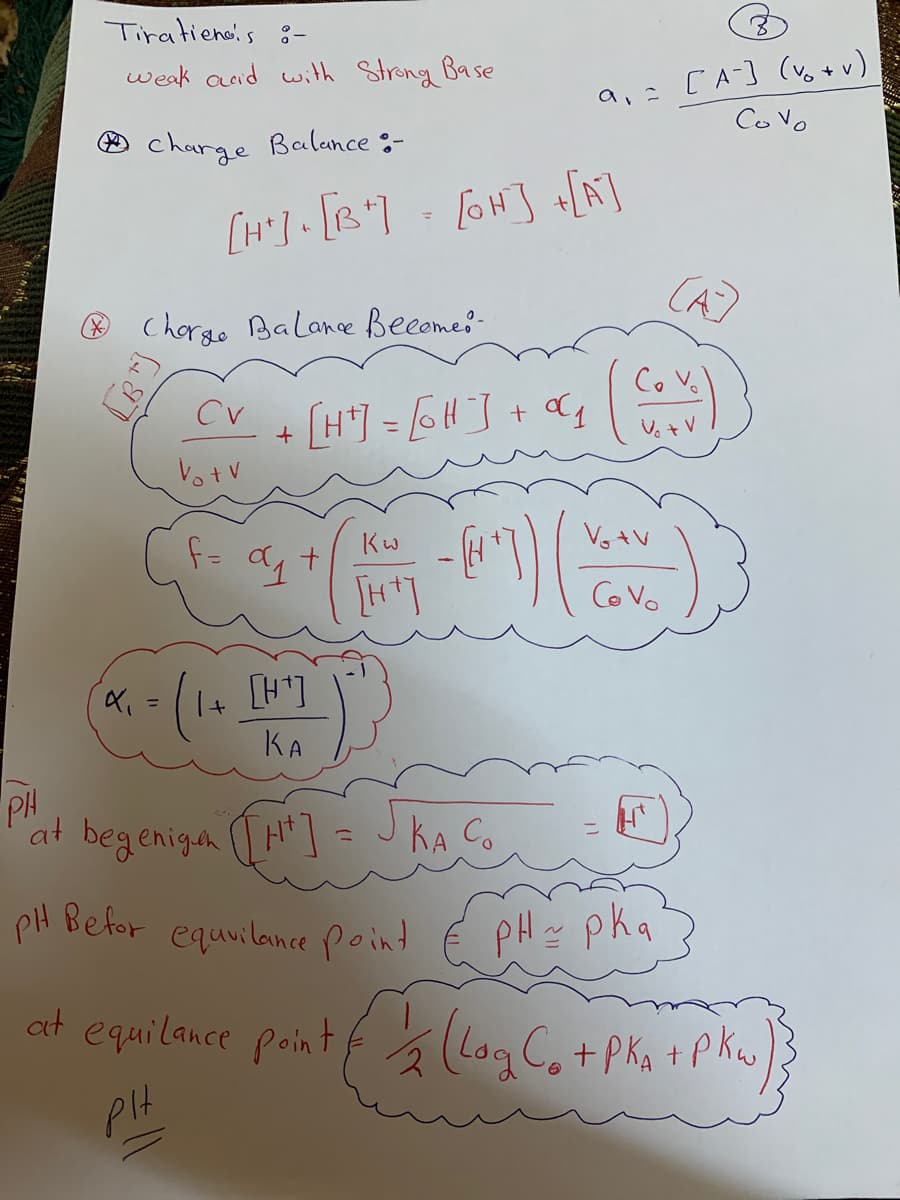 Tiratienois :-
8
weak acid with Strong Base
a₁ = [A⁻] (V₀ + V) / C₀ V₀
⊛ charge Balance :-
[H⁺] + [B⁺] = [OH⁻] + [A⁻]
⊛ Charge BaLance Becomes:-
[A⁻]
[B⁺]
CV / V₀ + V + [H⁺] = [OH⁻] + α₁ (C₀ V₀ / V₀ + V)
f = α₁ + (Kw / [H⁺] - [H⁺]) (V₀ + V / C₀ V₀)
α₁ = (1 + [H⁺] / KA)⁻¹
pH
at begenigen [H⁺] = √KA C₀ = [H⁺]
pH Befor equvilance point = pH ≃ pka
at equilance point = 1/2 (Log C₀ + PKA + PKw)
pH